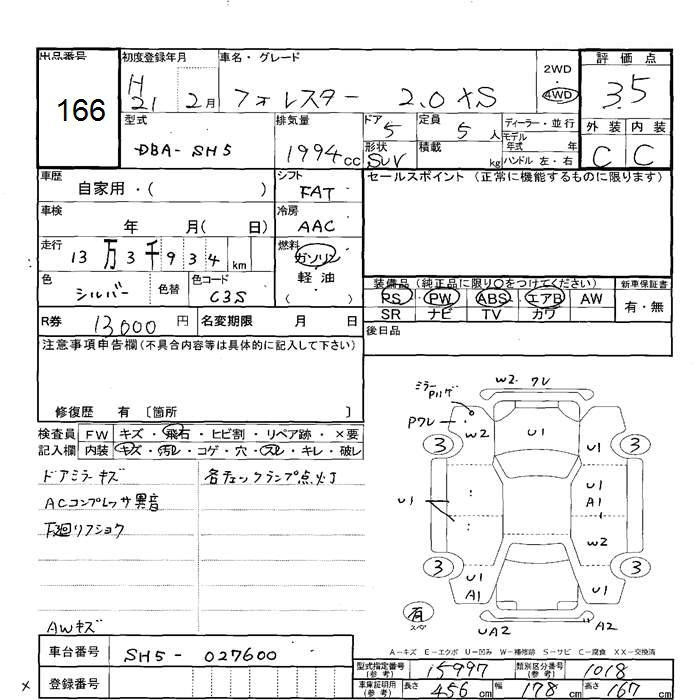 出品番号 初度登録年月 車名・グレード 2WD 評価点
166 H21 2月 フォレスター 2.0 XS 4WD 3.5
型式 排気量 ドア 定員 ディーラー・並行 外装 内装
DBA-SH5 1994cc 5 5人 モデル年式 年 C C
形状 積載 ハンドル 左・右
SUV kg
車歴 シフト セールスポイント (正常に機能するものに限ります)
自家用・( ) FAT
車検 冷房
年 月( 日) AAC
走行 燃料
13万3千934km ガソリン
色 色替 色コード 軽油
シルバー C3S ( )
装備品 (純正品に限り○をつけてください) 新車保証書
PS PW ABS エアB AW 有・無
SR ナビ TV カワ
R券 13,000円 名変期限 月 日 後日品
注意事項申告欄(不具合内容等は具体的に記入して下さい)
修復歴 有 〔箇所 〕
検査員 FW キズ・飛石・ヒビ割・リペア跡・×要
記入欄 内装 キズ・汚レ・コゲ・穴・スレ・キレ・破レ
ドアミラーキズ 各チェックランプ点灯
ACコンプレッサ異音
下廻リフショク
AWキズ
車台番号 SH5-027600
登録番号
×
W2 ワレ
ミラー
Pワレ
W2 U1 U1
3 3
U1 U1
A1
W2
3 3
U1 U1
A1 A1
有
スペア
UA2 A2
A-キズ E-エクボ U-凹み W-補修跡 S-サビ C-腐食 XX-交換済
型式指定番号(参考) 15997 類別区分番号(参考) 1018
車庫証明用(参考) 長さ 456cm 幅 178cm 高さ 167cm